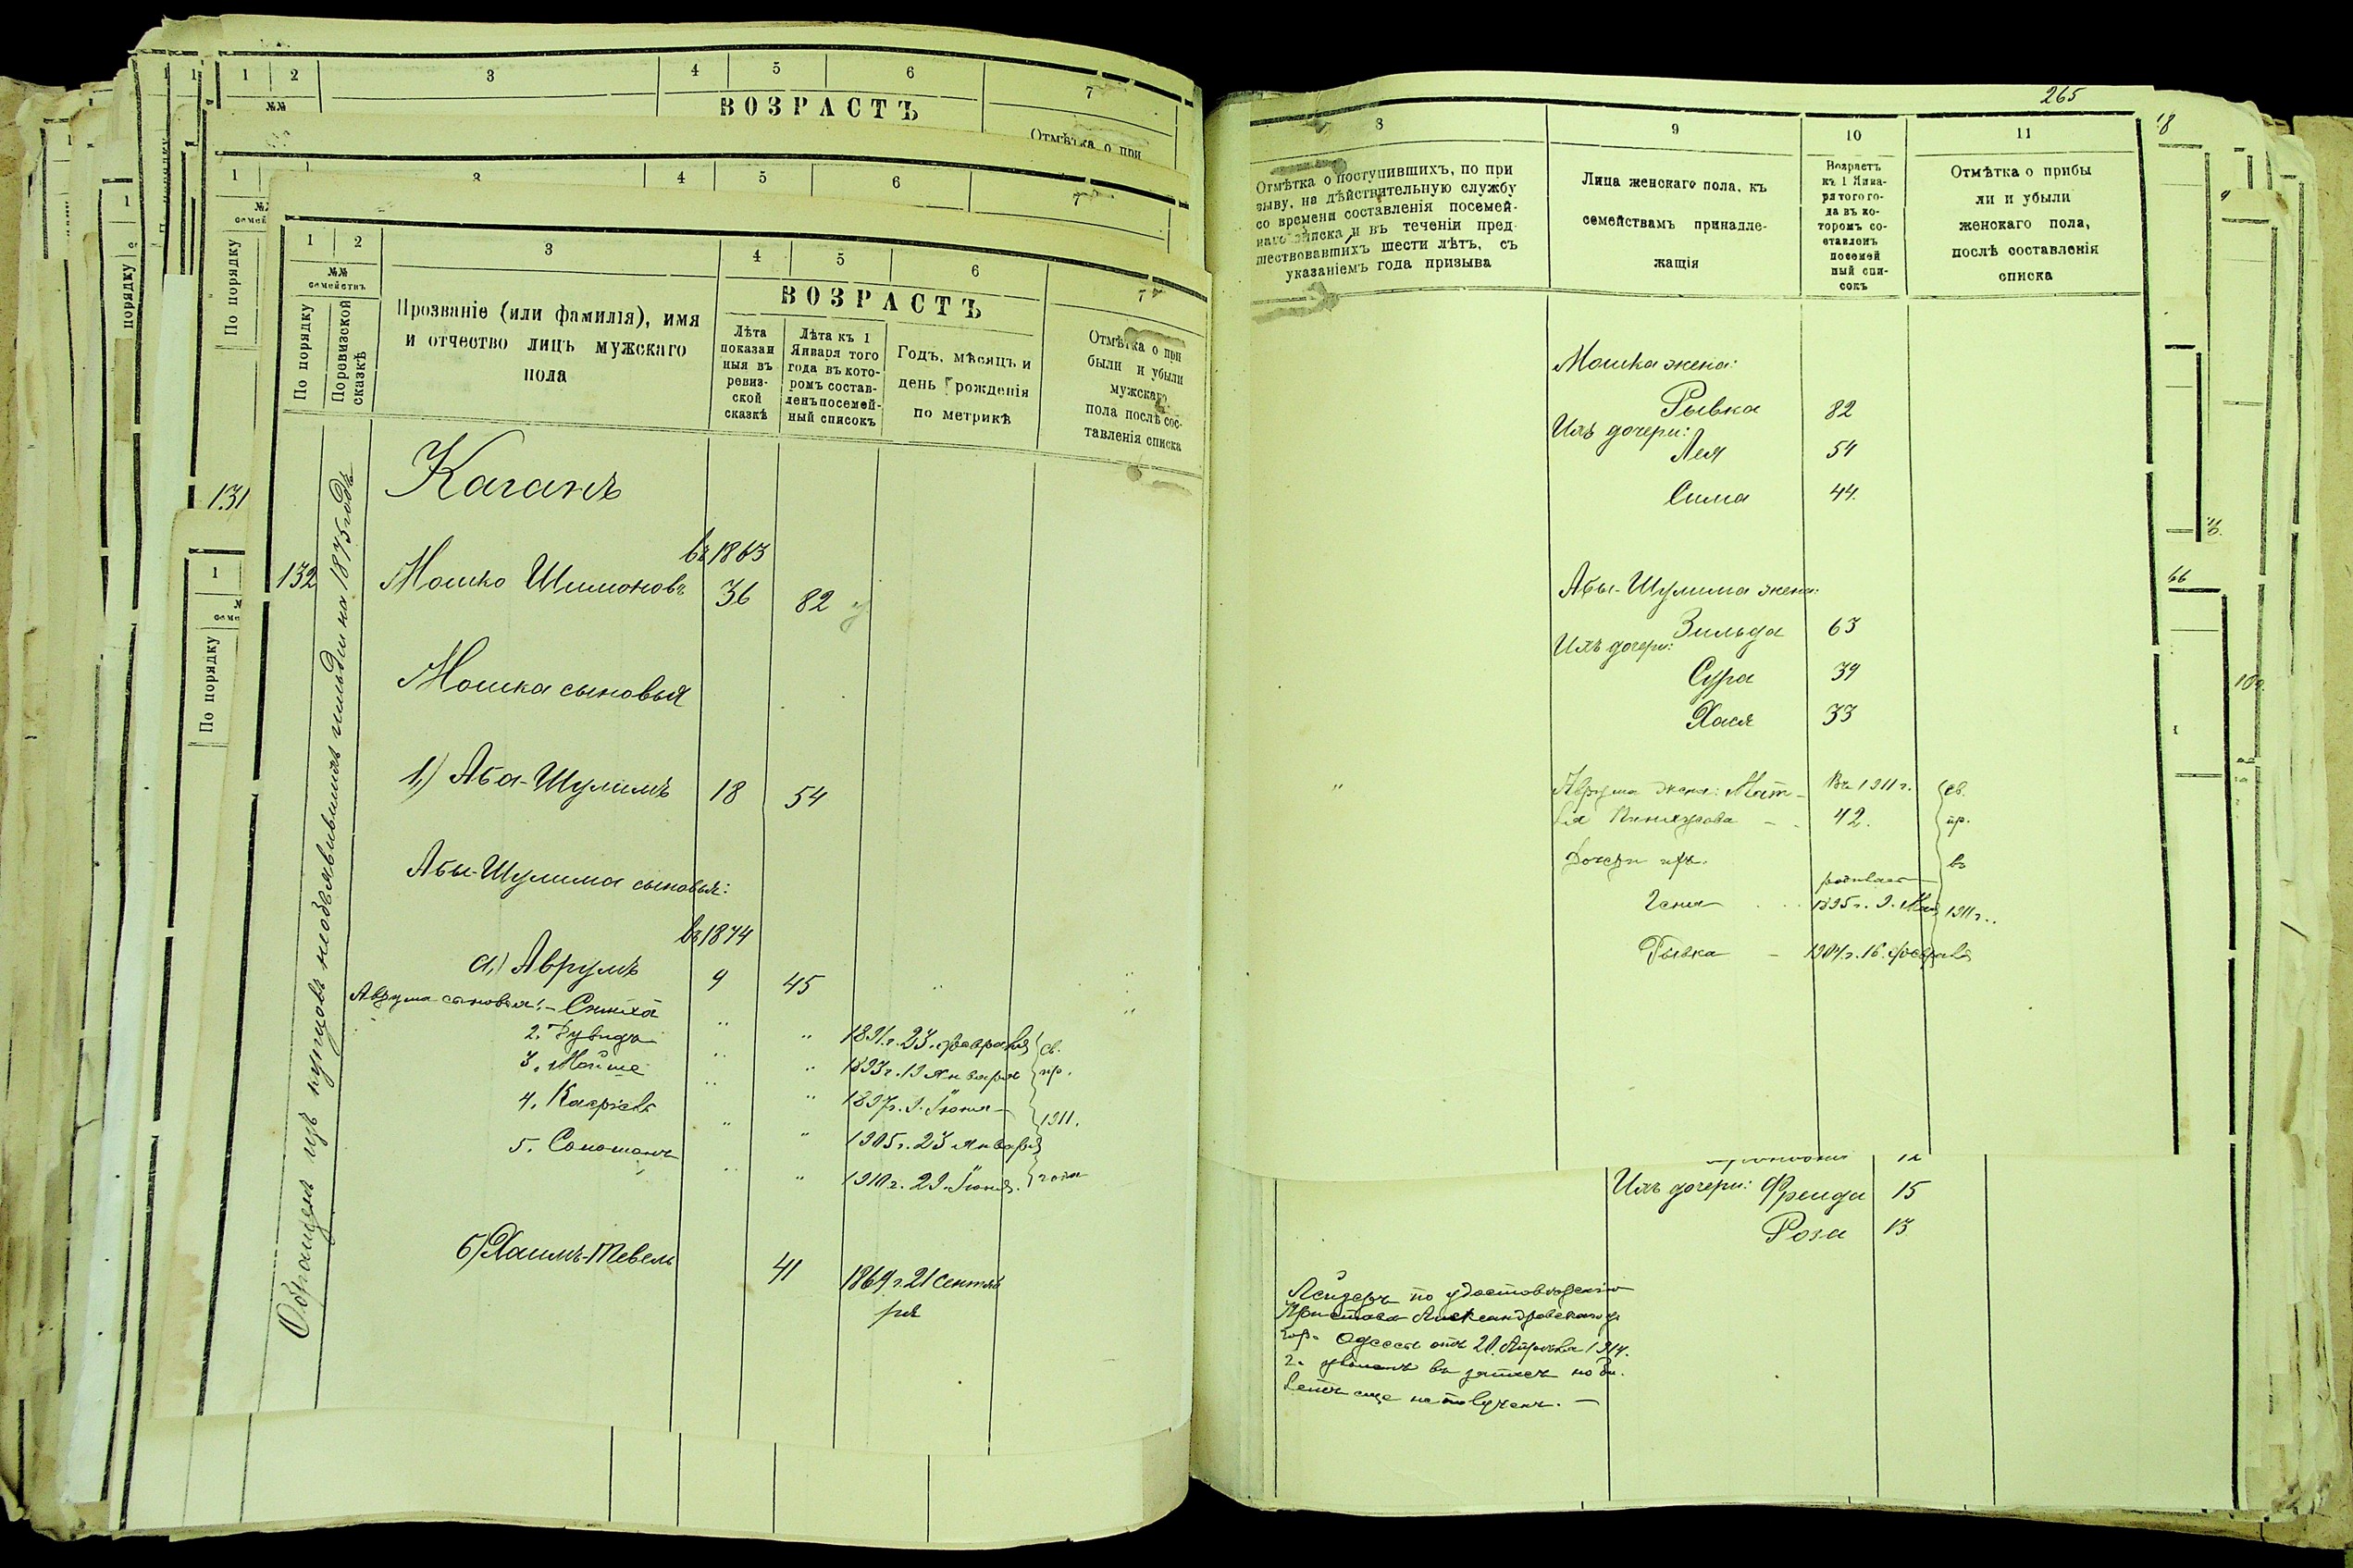 1 2 3 4 5 6 7
№№
ВОЗРАСТЪ
Отмѣтка о при
1 4 5 6 7
По порядку
131
1
По порядку
порядку
1 2 3 4 5 6 7
№№ семействъ
По порядку
По ревизской сказкѣ
Прозваніе (или фамилія), имя
и отчество лицъ мужскаго
пола
ВОЗРАСТЪ
Лѣта
показан
ныя въ
ревиз-
ской
сказкѣ
Лѣта къ 1
Января того
года въ кото-
ромъ состав-
ленъ посемей-
ный список
Годъ, мѣсяцъ и
день рожденія
по метрикѣ
Отмѣтка о при
были и убыли
мужскаго
пола послѣ сос-
тавленія списка
Обращенъ изъ купцовъ необъявившихъ гильдіи на 1875 годъ
Каганъ
въ 1863
132 Мошко Шимоновъ 36 82
Мошка сыновья
1,) Аба-Шулимъ 18 54
Абы-Шулима сыновья:
въ 1874
а,) Аврумъ 9 45
Аврума сыновья: - Симха 1891 г. 23. февраля св.
2. Дувидъ 1893 г. 19 января пр.
3. Мойше 1897 г. 9. Іюня 1911.
4. 1905 г. 23 января
5. Соломонъ 1910 г. 29. Іюня. года
б) Хаимъ-Тевель 41 1869 г. 21 Сентяб
ря
265
8 9 10 11
Отмѣтка о поступившихъ, по при
зыву, на дѣйствительную службу
со времени составленія посемей-
наго списка и въ теченіи пред-
шествовавшихъ шести лѣтъ, съ
указаніемъ года призыва
Лица женскаго пола, къ
семействамъ принадле-
жащія
Возрастъ
къ 1 Янва-
ря того го-
да въ ко-
торомъ со-
ставленъ
посемей
ный спи-
сокъ
Отмѣтка о прибы
ли и убыли
женскаго пола,
послѣ составленія
списка
Мошка жена:
Рывка 82
Ихъ дочери:
Лея 54
Сима 44.
Абы-Шулима жена:
Зильда 63
Ихъ дочери:
Сура 39
Хася 33
Аврума жена: Въ 1911 г. св.
42. пр.
Дочери ихъ. въ
родилась
Геня 1895 г. 9. Мая 1911 г.
Рывка 1904 г. 16. февраля
Ихъ дочери: Фрейда 15
Роза 13
Лейзеръ по удостовѣренію
Пристава Александровскаго уч.
гор. Одессы отъ 20. Апрѣля 1914.